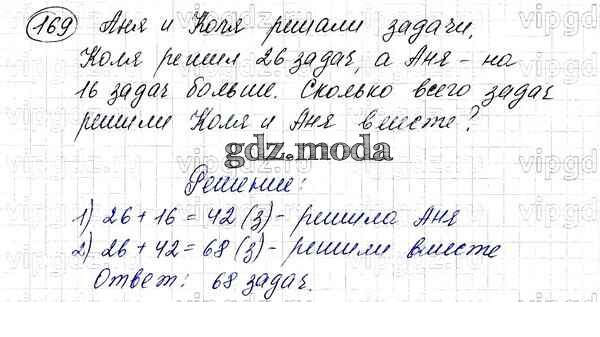 169 Аня и Коля решали задачи,
Коля решил 26 задач, а Аня - на
16 задач больше. Сколько всего задач
решили Коля и Аня вместе?
gdz.moda
Решение:
1) 26 + 16 = 42 (з) - решила Аня
2) 26 + 42 = 68 (з) - решили вместе
Ответ: 68 задач.